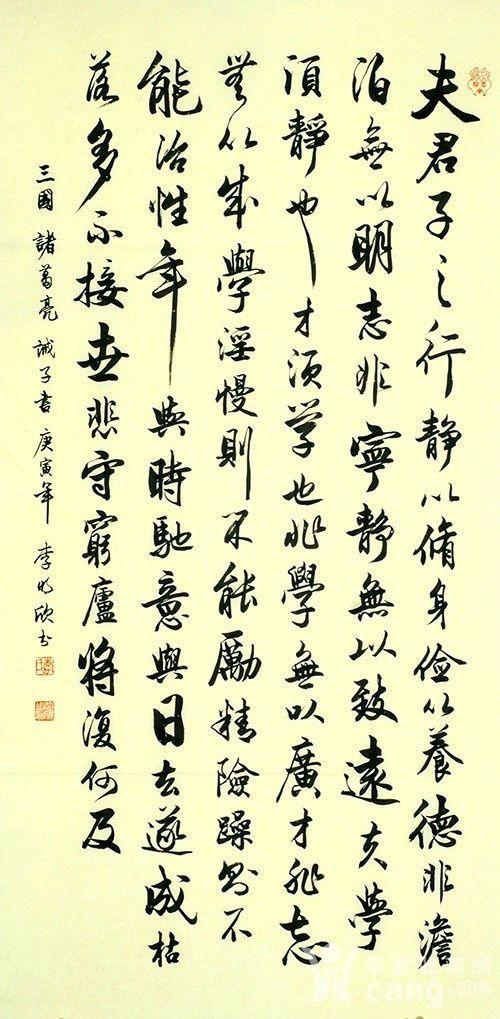 夫君子之行靜以脩身俭以養德非澹
泊無以明志非寧靜無以致遠夫學
須靜也才須学也非學無以廣才非志
無以成學淫慢則不能勵精險躁則不
能治性年與時馳意與日去遂成枯
落多不接世悲守窮廬將復何及
三國 諸葛亮 誡子書 庚寅年 李明欣书
華夏收藏網
cang.com